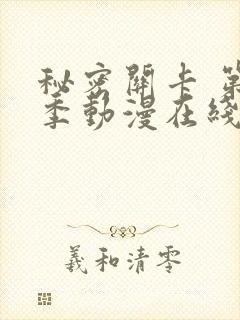 秘密關卡 第
季動漫在綫
羲和清零